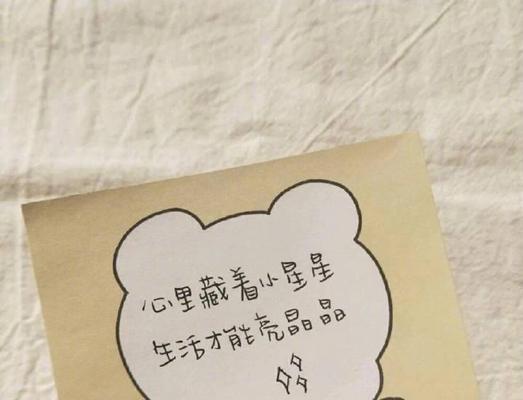 心里藏着小星星
生活才能亮晶晶